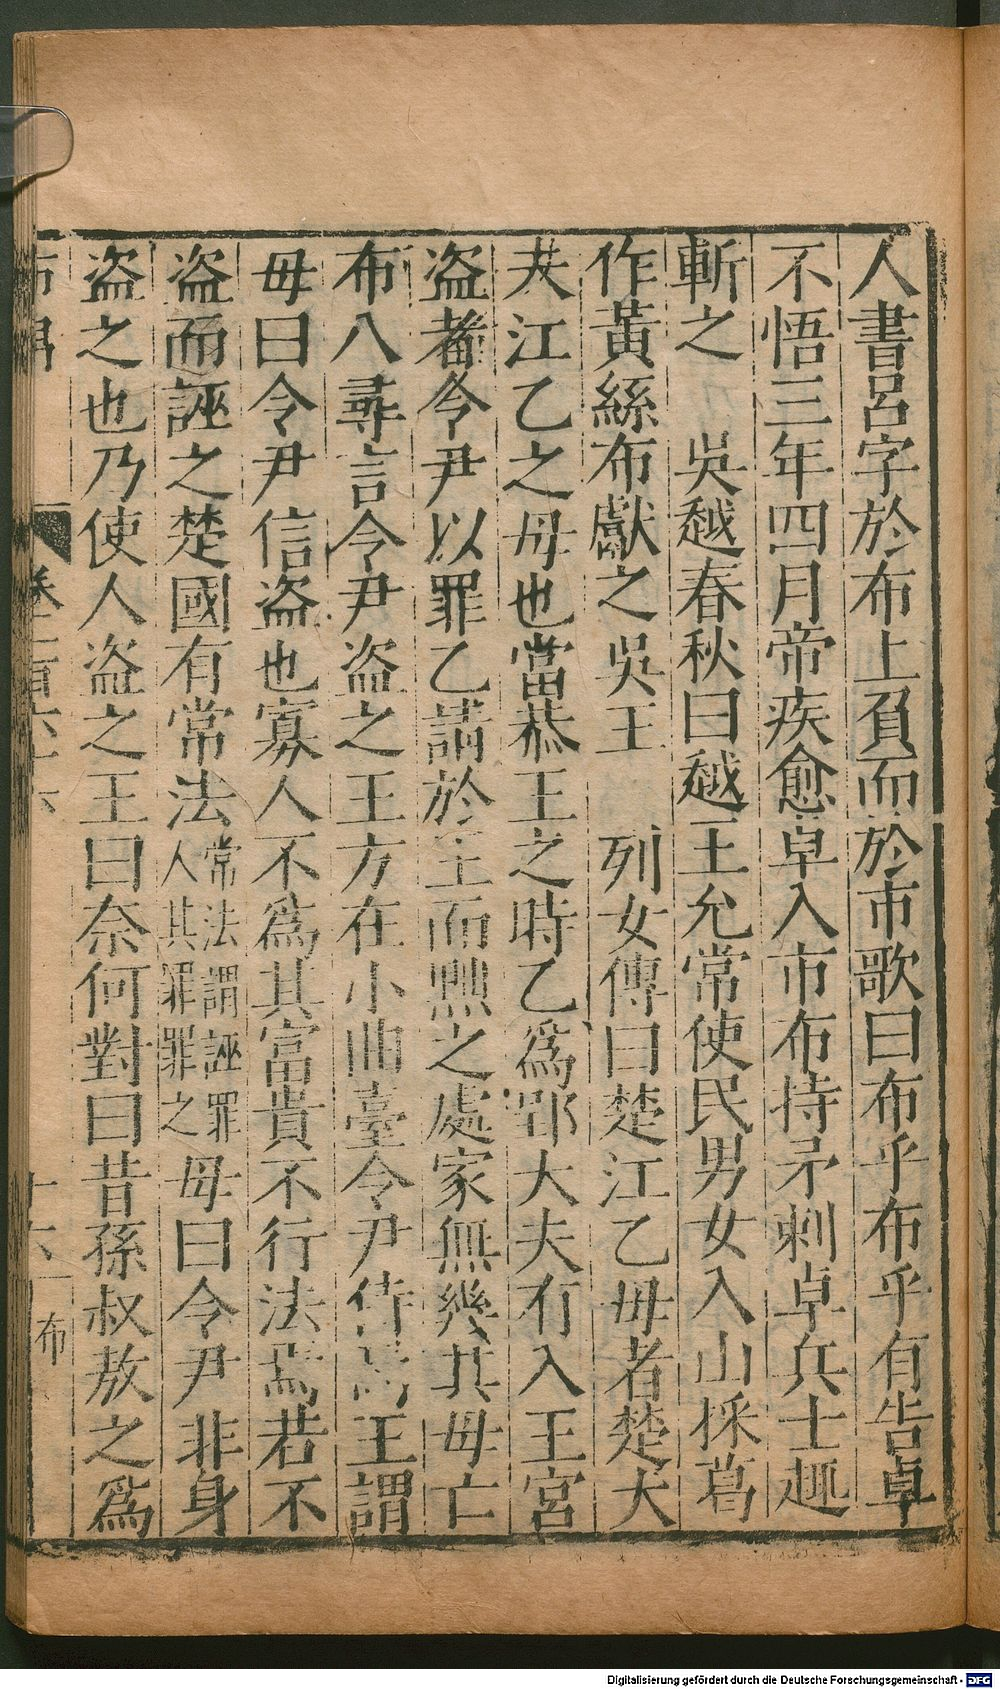 人書呂字於布上負而於市歌曰布乎布乎有告卓
不悟三年四月帝疾愈卓入市布持矛刺卓兵士趣
斬之　吳越春秋曰越王允常使民男女入山採葛
作黃絲布獻之吳王　列女傳曰楚江乙母者楚大
夫江乙之母也當恭王之時乙為郢大夫有入王宮
盜者令尹以罪乙請於王而黜之處家無幾其母亡
布八尋言令尹盜之王方在小曲臺令尹侍焉王謂
母曰令尹信盜也寡人不為其富貴不行法焉若不
盜而誣之楚國有常法常法謂誣罪人其罪罪之母曰令尹非身
盜之也乃使人盜之王曰奈何對曰昔孫叔敖之為
卷二百六十六
十六
布
Digitalisierung gefördert durch die Deutsche Forschungsgemeinschaft - DFG